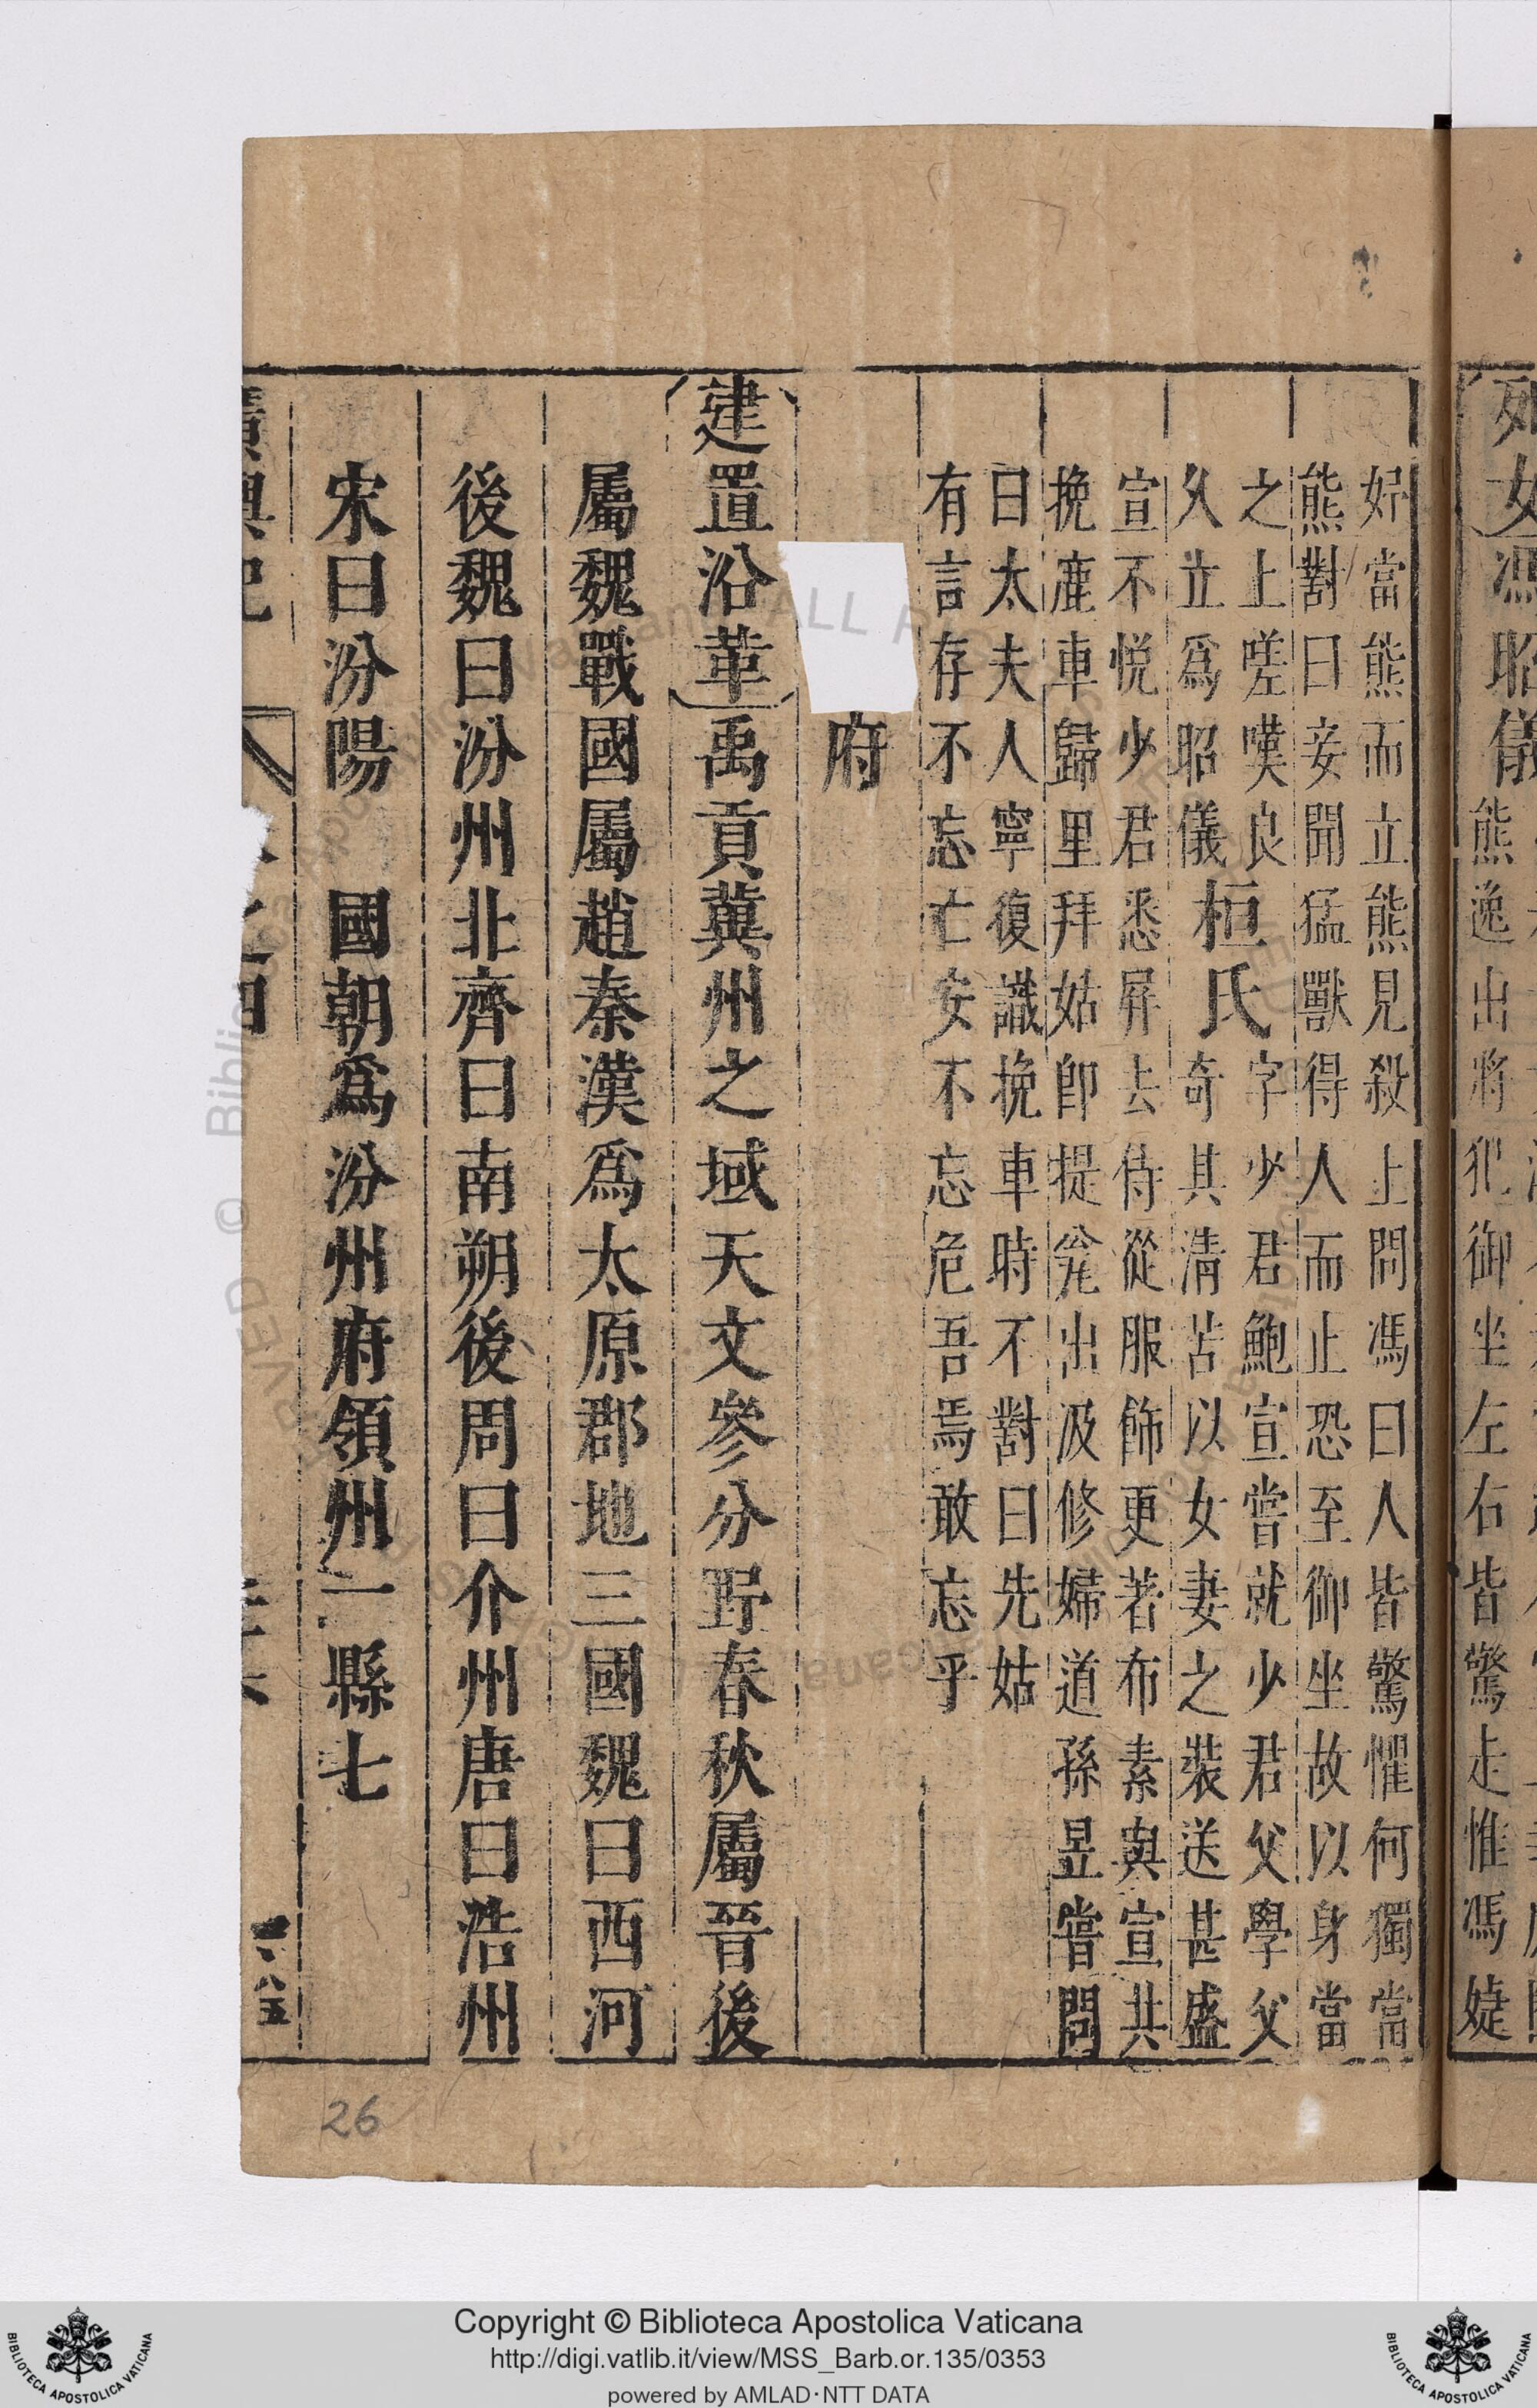 列女
馮昭儀
熊逸出將犯御坐左右皆驚走惟馮婕
好當熊而立熊見殺上問馮曰人皆驚懼何獨當
熊對曰妾聞猛獸得人而止恐至御坐故以身當
之上嗟嘆良
久立爲昭儀
桓氏
字少君鮑宣嘗就少君父學父
奇其清苦以女妻之裝送甚盛
宣不悦少君悉屏去侍從服飾更著布素與宣共
挽鹿車歸里拜姑卽提瓮出汲修婦道孫昱嘗問
曰太夫人寧復識挽車時不對曰先姑
有言存不忘亡安不忘危吾焉敢忘乎
府
建置沿革禹貢冀州之域天文參分野春秋屬晉後
屬魏戰國屬趙秦漢爲太原郡地三國魏曰西河
後魏曰汾州北齊曰南朔後周曰介州唐曰浩州
宋曰汾陽 國朝爲汾州府領州一縣七
廣輿記
之四
八五
26
© Biblioteca Apostolica Vaticana ALL RIGHTS RESERVED
Copyright © Biblioteca Apostolica Vaticana
http://digi.vatlib.it/view/MSS_Barb.or.135/0353
powered by AMLAD·NTT DATA
BIBLIOTECA APOSTOLICA VATICANA
BIBLIOTECA APOSTOLICA VATICANA